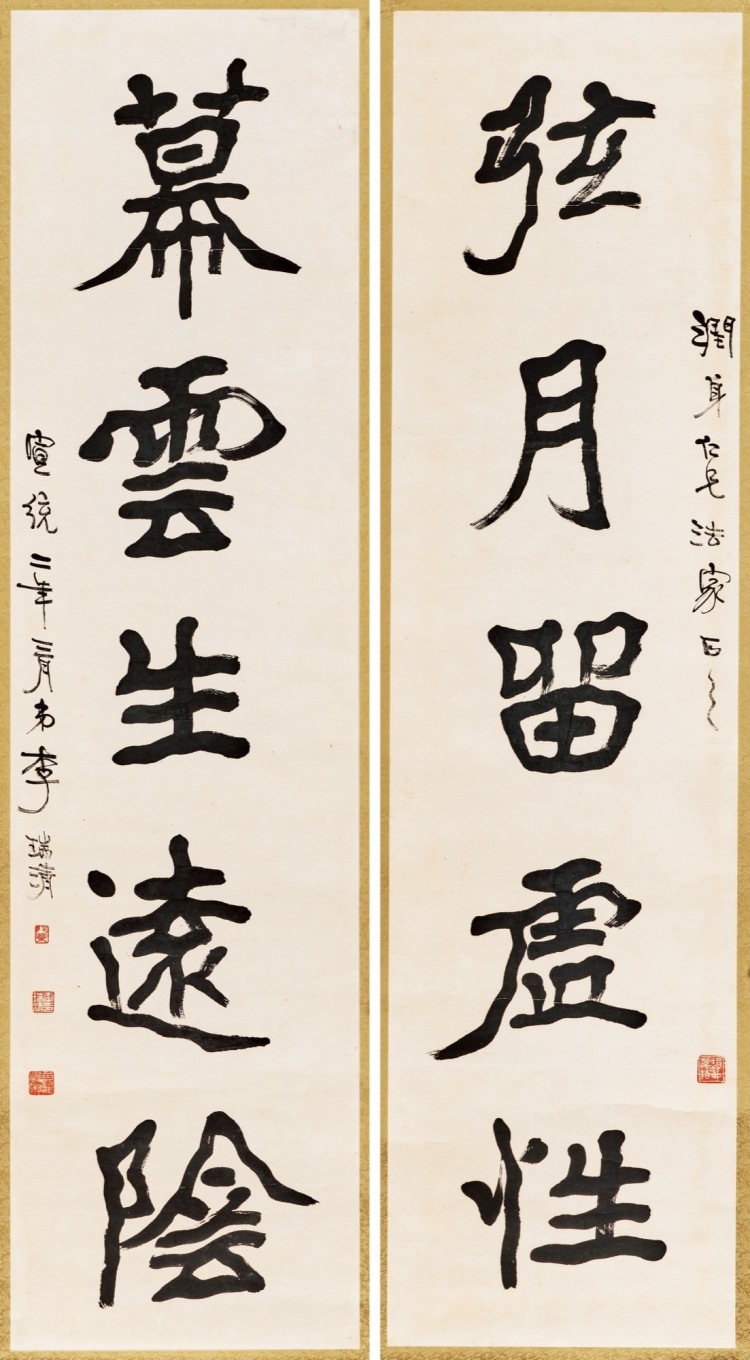 潤身仁兄法家正之
弦月留虛性
幕雲生遠陰
宣統二年三月弟李瑞清